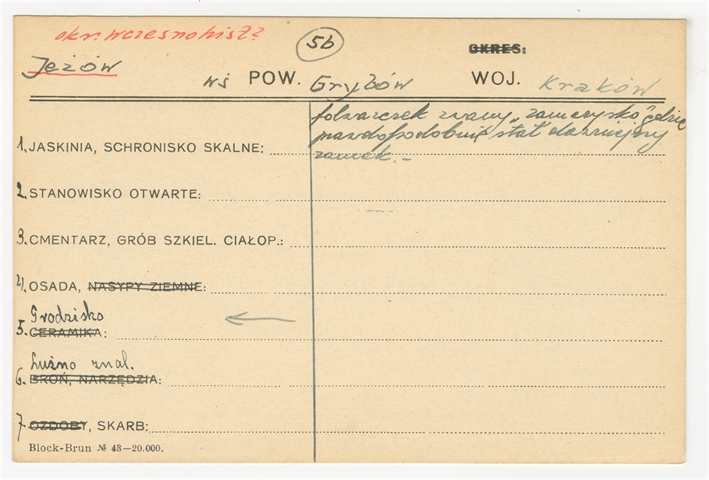 okr. wczesnohist?
5b
OKRES:
Jeżów wś POW. Grybów WOJ. Kraków
folwarczek zwany „zamczysko" gdzie
prawdopodobnie stał dawniejszy
zamek.-
1. JASKINIA, SCHRONISKO SKALNE:
2. STANOWISKO OTWARTE:
3. CMENTARZ, GRÓB SZKIEL. CIAŁOP.:
4. OSADA, NASYPY ZIEMNE:
Grodzisko
5. CERAMIKA:
Luźno znal.
6. BROŃ, NARZĘDZIA:
7 OZDOBY, SKARB:
Block-Brun № 43—20.000.